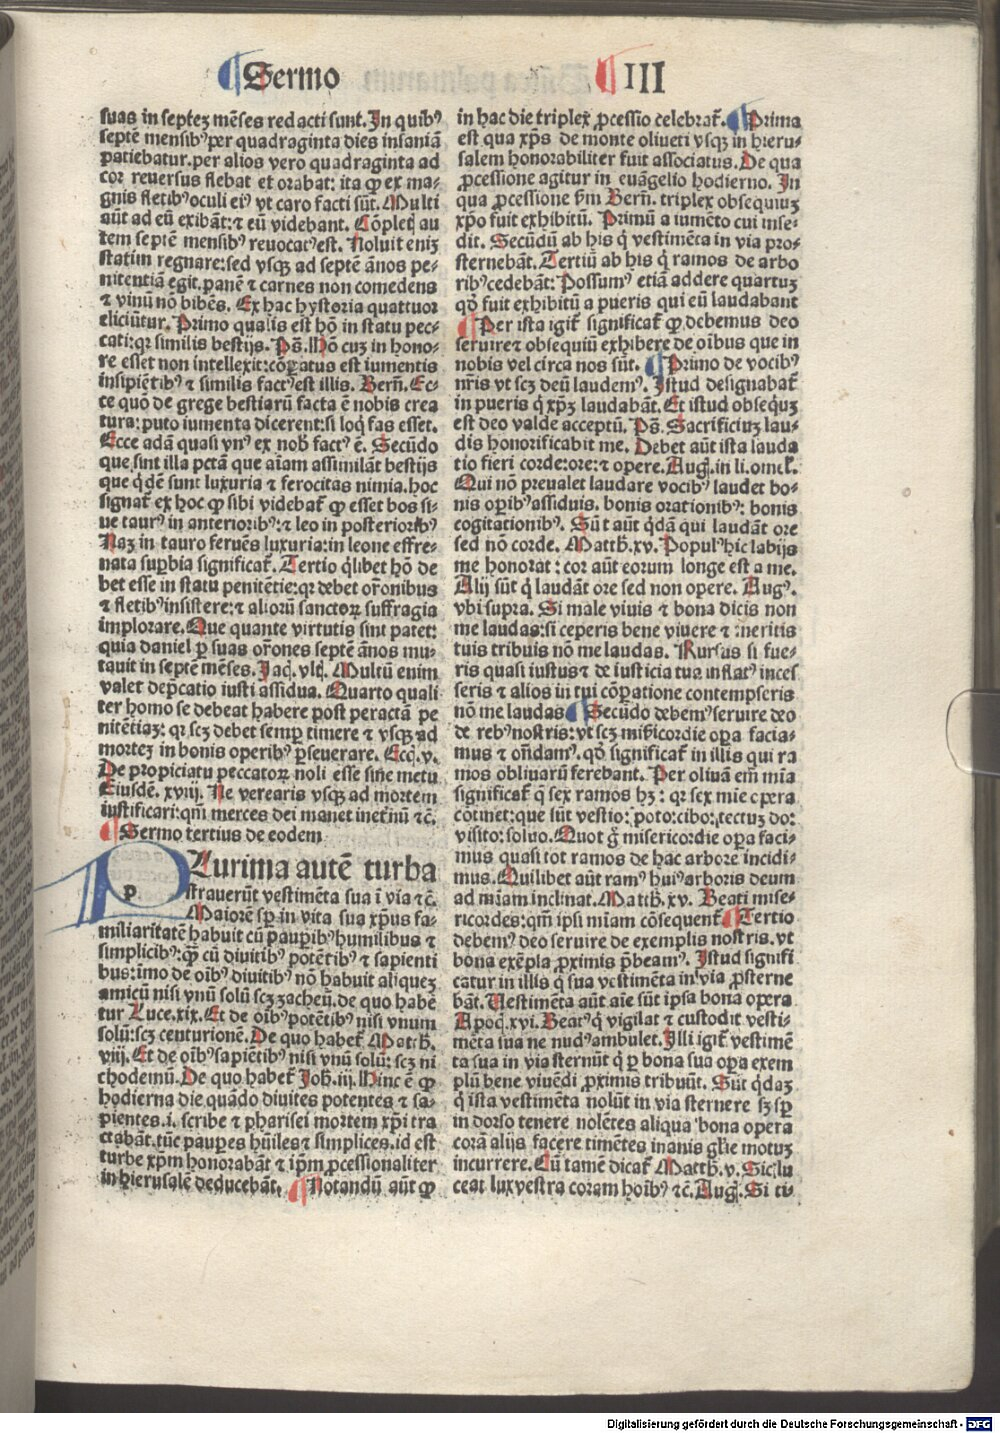 Sermo III
suas in septeʒ mēses redacti sunt. In quibꝰ
septē mensibꝰ per quadraginta dies insaniā
patiebatur. per alios vero quadraginta ad
cor reuersus flebat et orabat: ita ꝙ ex ma-
gnis fletibꝰ oculi eiꝰ vt caro facti sūt. Multi
aūt ad eū exibāt: ⁊ eū videbant. Cōpletꝭ au
tem septē mensibꝰ reuocatꝰ est. Noluit eniʒ
statim regnare: sed vsqʒ ad septē ānos pe-
nitentiā egit. panē ⁊ carnes non comedens
⁊ vinū nō bibēs. Ex hac hystoria quattuor
eliciūtur. Primo qualis est hō in statu pec-
cati: qꝛ similis bestijs. Ps. Hō cuʒ in hono-
re esset non intellexit: cōꝑatus est iumentis
insipiētibꝰ ⁊ similis factꝰ est illis. Bern̄. Ec-
ce quō de grege bestiarū facta ē nobis crea
tura: puto iumenta dicerent: si loqͥ fas esset.
Ecce adā quasi vnꝰ ex nob̄ factꝰ ē. Secūdo
que sint illa pctā que aīam assimilāt bestijs
que qͥdē sunt luxuria ⁊ ferocitas nimia. hoc
signat̄ ex hoc ꝙ sibi videbat̄ ꝙ esset bos si-
ue taurꝰ in anterioribꝰ: ⁊ leo in posterioribꝰ
Naʒ in tauro feruēs luxuria: in leone effre-
nata suꝑbia significat̄. Tertio qͥlibet hō de
bet esse in statu penitētie: qꝛ debet or̄onibus
⁊ fletibꝰ insistere: ⁊ aliorū sanctoꝝ suffragia
implorare. Que quante virtutis sint patet:
quia daniel ꝑ suas or̄ones septē ānos mu-
tauit in septē mēses. Jaq̄. vlꝭ. Multū enim
valet dep̄catio iusti assidua. Quarto quali
ter homo se debeat habere post peractā pe
nitētiaʒ: qꝛ scʒ debet semꝑ timere ⁊ vsqʒ ad
morteʒ in bonis operibꝰ ꝑseuerare. Ecc̄. v.
De propiciatu peccatoꝝ noli esse sine metu
Eiusdē. xviij. Ne verearis vsqʒ ad mortem
iustificari: qm̄ merces dei manet inet̄nū ⁊c̄.
Sermo tertius de eodem
PLurima autē turba
strauerūt vestimēta sua ī via ⁊c̄.
Maiorē sꝑ in vita sua xp̄us fa-
miliaritatē habuit cū pauꝑibꝰ humilibus ⁊
simplicibꝰ: qͣꝫ cū diuitibꝰ potētibꝰ ⁊ sapienti
bus: imo de oībꝰ diuitibꝰ nō habuit aliqueʒ
amicū nisi vnū solū scʒ zacheū. de quo habē
tur Luce. xix. Et de oībꝰ potētibꝰ nisi vnum
solū: scʒ centurionē. De quo habet̄ Matth̄.
viij. Et de oībꝰ sapiētibꝰ nisi vnū solū: scʒ ni
chodemū. De quo habet̄ Joh̄. iij. Hinc ē ꝙ
hodierna die quādo diuites potentes ⁊ sa-
pientes. i. scribe ⁊ pharisei mortem xp̄i tra
ctabāt. tūc pauꝑes hūiles ⁊ simplices. id est
turbe xp̄m honorabāt ⁊ ip̄m ꝓcessionaliter
in hierusalē deducebāt. Notandū aūt ꝙ
in hac die triplex ꝓcessio celebrat̄. Prima
est qua xp̄s de monte oliueti vsqʒ in hieru-
salem honorabiliter fuit associatus. De qua
ꝓcessione agitur in euāgelio hodierno. In
qua ꝓcessione ẜm Bern̄. triplex obsequiuʒ
xp̄o fuit exhibitū. Primū a iumēto cui inse-
dit. Secūdū ab his qͥ vestimēta in via pro-
sternebāt. Tertiū ab his qͥ ramos de arbo
ribꝰ cedebāt: Possumꝰ etiā addere quartuʒ
qd̄ fuit exhibitū a pueris qui eū laudabant
Per ista igit̄ significat̄ ꝙ debemus deo
seruire ⁊ obsequiū exhibere de oībus que in
nobis vel circa nos sūt. Primo de vocibꝰ
nr̄is vt scʒ deū laudemꝰ. Istud designabat̄
in pueris qͥ xp̄ʒ laudabāt. Et istud obseqͥuʒ
est deo valde acceptū. Ps. Sacrificiuʒ lau-
dis honorificabit me. Debet aūt ista lauda
tio fieri corde: ore: ⁊ opere. Aug. in li. omel̄.
Qui nō preualet laudare vocibꝰ laudet bo-
nis oꝑibꝰ assiduis. bonis orationibꝰ: bonis
cogitationibꝰ. Sūt aūt qͥdā qui laudāt ore
sed nō corde. Matth̄. xv. Populꝰ hic labijs
me honorat: cor aūt eorum longe est a me.
Alij sūt qͥ laudāt ore sed non opere. Augꝰ.
vbi supra. Si male viuis ⁊ bona dicis non
me laudas: si ceperis bene viuere ⁊ meritis
tuis tribuis nō me laudas. Rursus si fue-
ris quasi iustus ⁊ de iusticia tua inflatꝰ inces
seris ⁊ alios in tui cōꝑatione contempseris
nō me laudas Secūdo debemꝰ seruire deo
de rebꝰ nostris: vt scʒ mīicordie oꝑa facia-
mus ⁊ ondam̄. qd̄ significat̄ in illis qui ra
mos oliuarū ferebant. Per oliuā em̄ mīa
significat̄ q̄ sex ramos hʒ: qꝛ sex mīe opera
cōtinet: que sūt vestio: poto: cibo: tectuʒ do:
visito: soluo. Quot g̊ misericordie oꝑa faci-
mus quasi tot ramos de hac arbore incidi-
mus. Quilibet aūt ramꝰ huiꝰ arboris deum
ad mīam inclinat. Matth̄. xv. Beati mise-
ricordes: qm̄ ipsi mīam cōsequent̄. Tertio
debemꝰ deo seruire de exemplis nostris. vt
bona exēpla ꝓximis p̄beamꝰ. Istud signifi
catur in illis qͥ sua vestimēta in via ꝓsterne
bāt. Vestimēta aūt aīe sūt ipsa bona opera
Apoc̄. xvi. Beatꝰ qͥ vigilat ⁊ custodit vesti-
mēta sua ne nudꝰ ambulet. Illi igit̄ vestimē
ta sua in via sternūt qͥ ꝑ bona sua oꝑa exem
plū bene viuēdi ꝓximis tribuūt. Sūt qͥdaʒ
qͥ ista vestimēta nolūt in via sternere sʒ sꝑ
in dorso tenere nolētes aliqua bona opera
corā alijs facere timētes inanis gl̄ie motuʒ
incurrere. Cū tamē dicat̄ Matth̄. v. Sic lu
ceat lux vestra coram hoībꝰ ⁊c̄. Aug. Si ti-
Digitalisierung gefördert durch die Deutsche Forschungsgemeinschaft - DFG